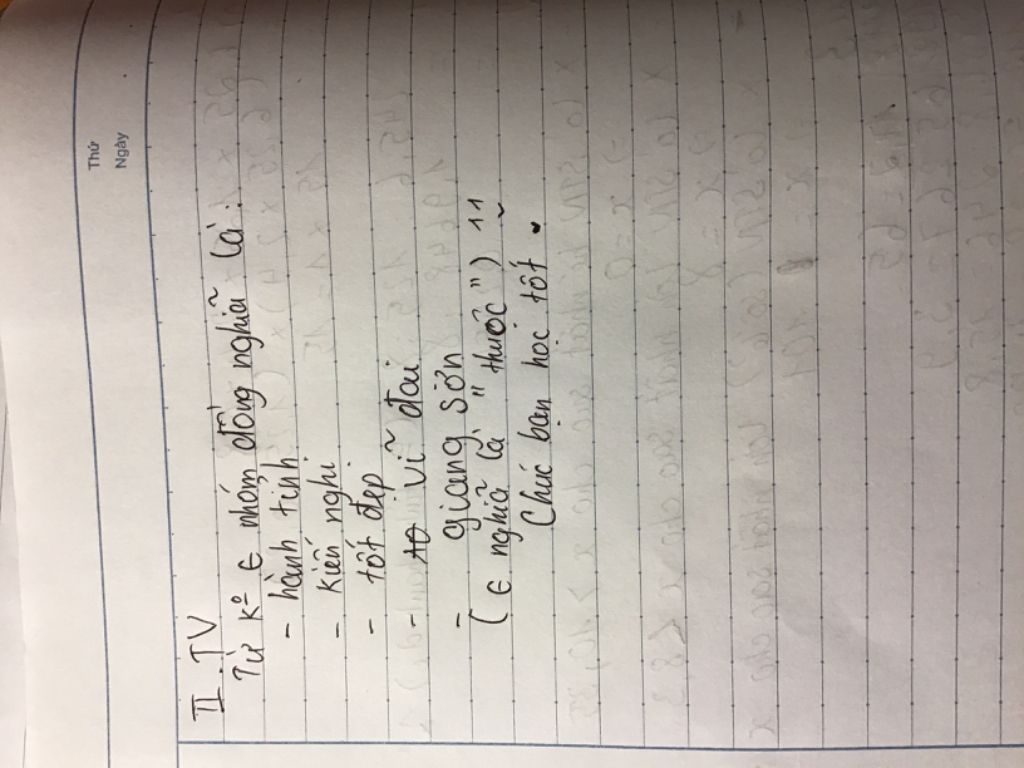 Thứ
Ngày
II. TV
Từ kº ∈ nhóm đồng nghĩa là:
- hành tinh
- kiến nghị
- tốt đẹp
- vĩ đại
- giang sơn
( ∈ nghĩa là "thuộc" ) ^^
Chúc bạn học tốt.